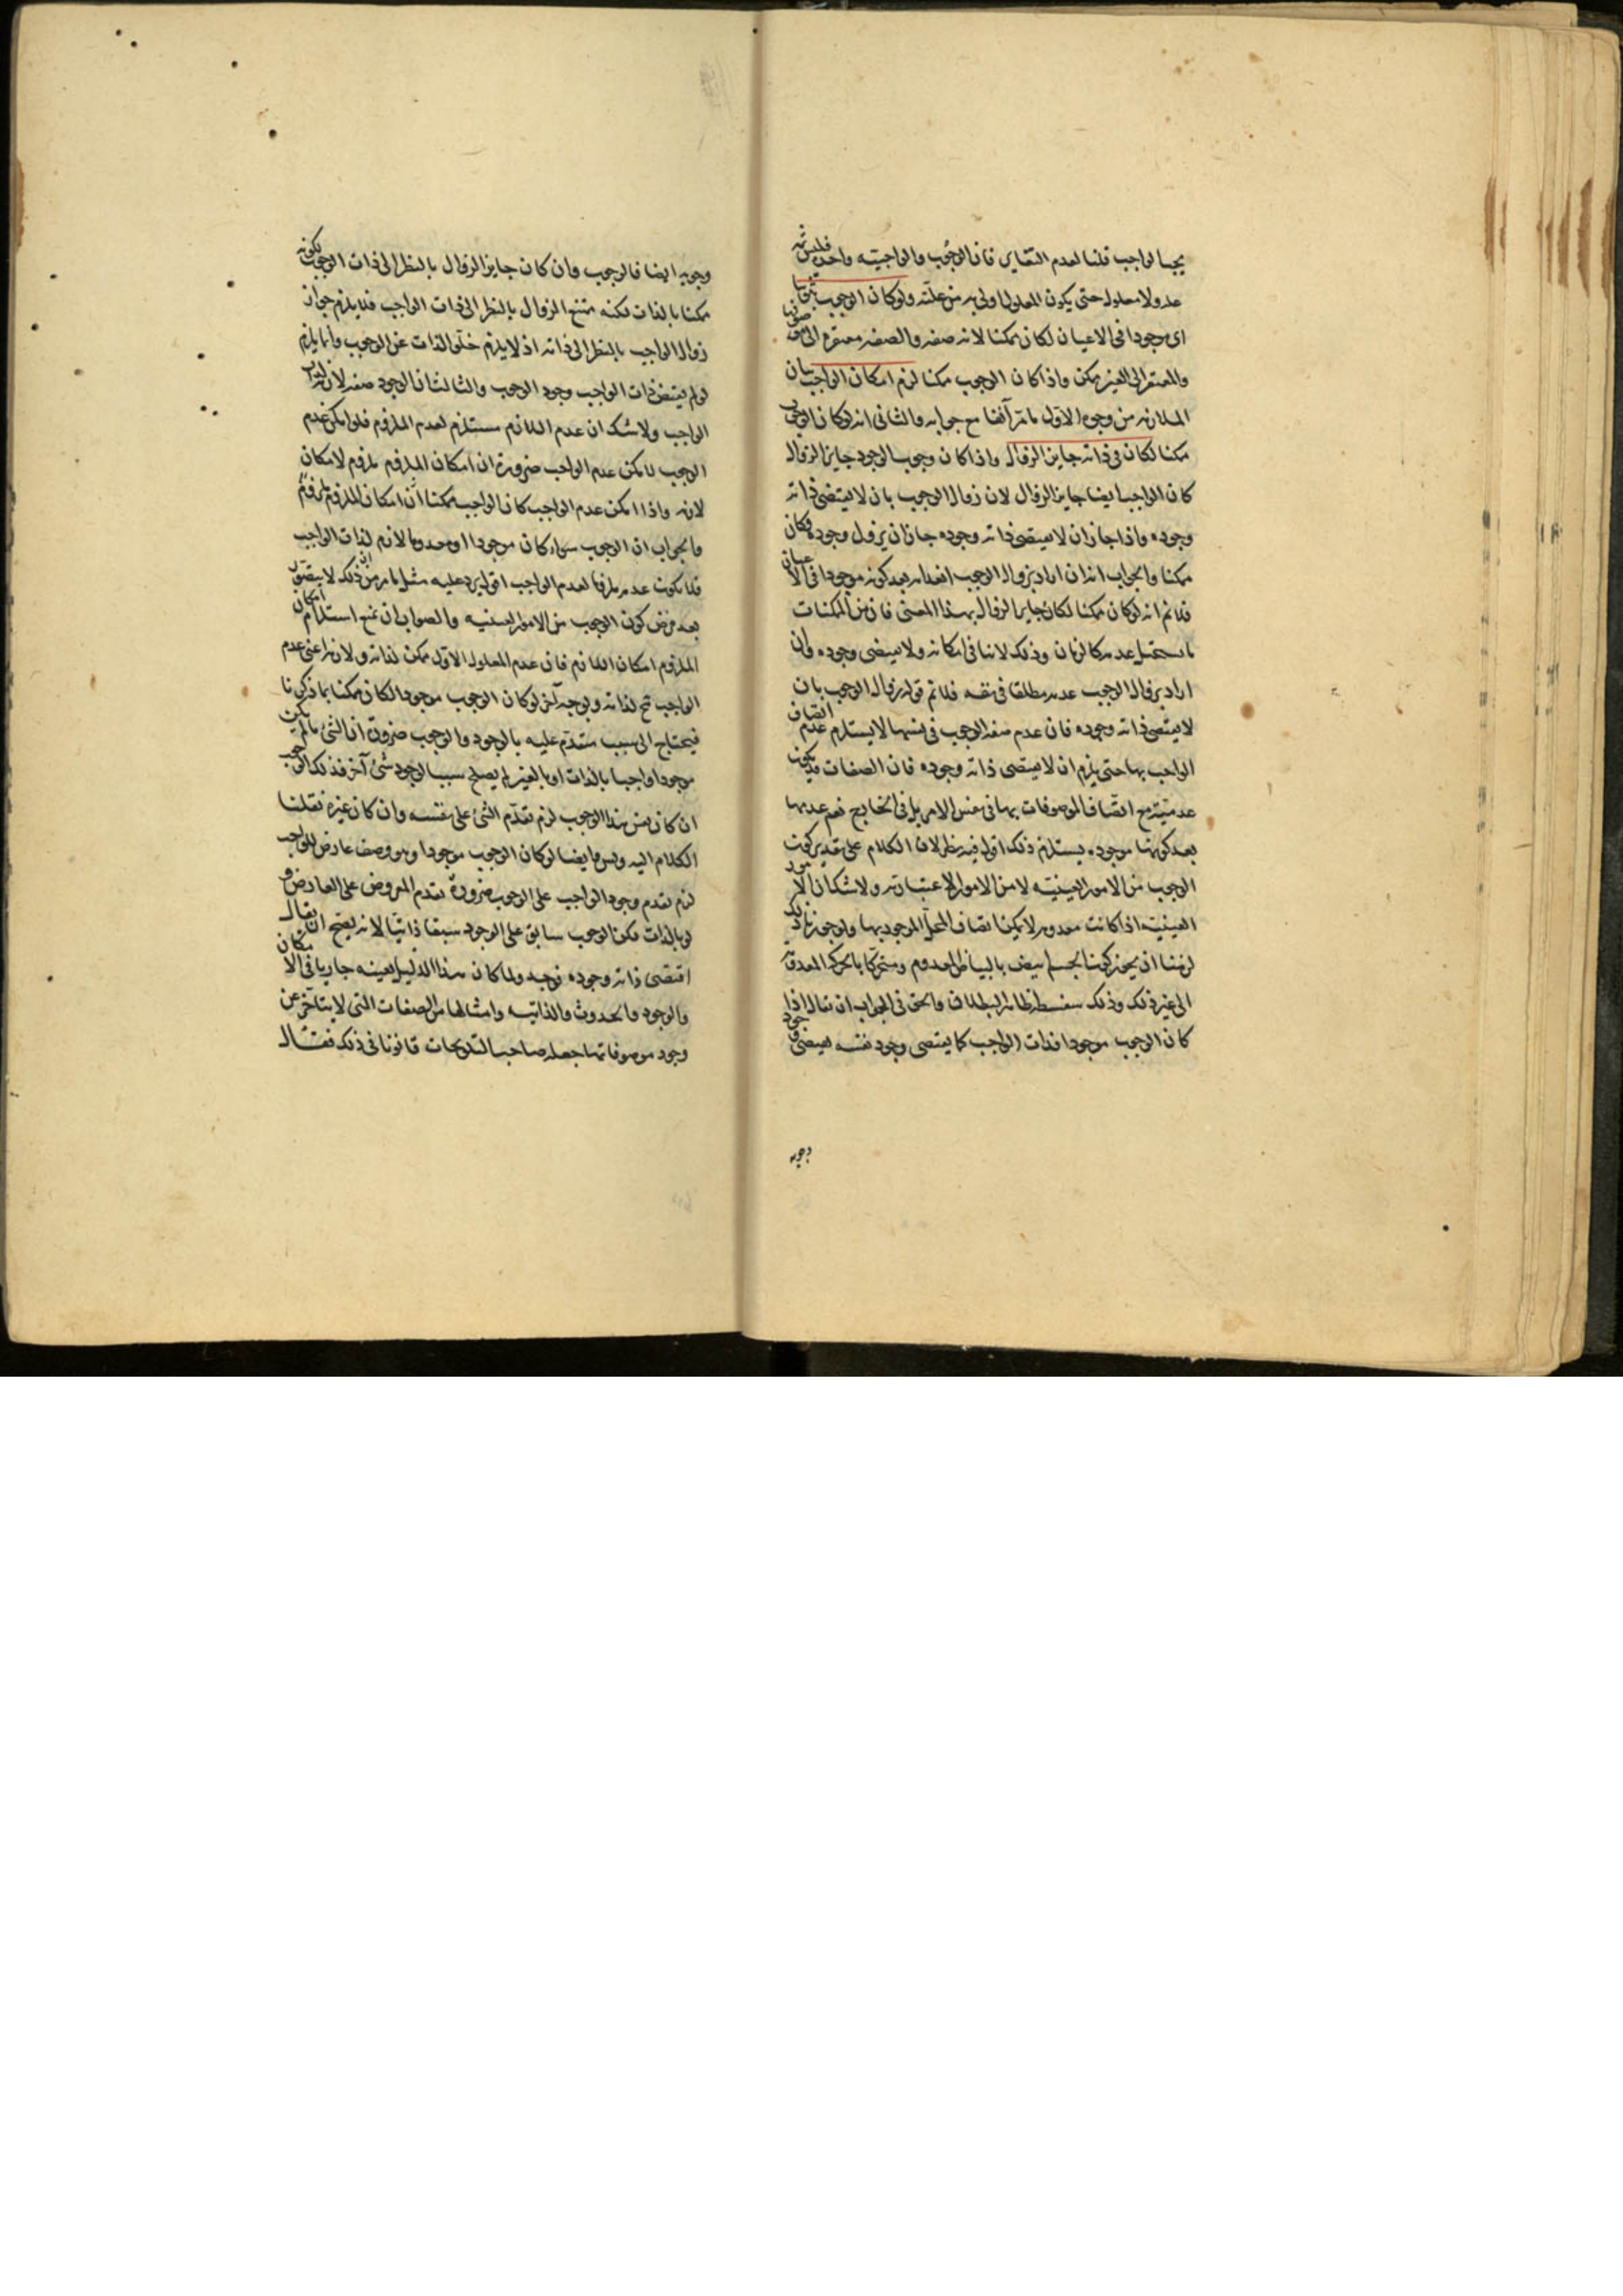 يجب الواجب قلنا لعدم التغاير فان الوجوب والواجبية واحد فليس ثمه
علة ولا معلول حتى يكون المعلول اولى به من علته ولو كان الوجوب ثبوتيا
اى موجودا فى الاعيان لكان ممكنا لانه صفة والصفة مفتقرة الى موصوفها
والمفتقر الى الغير ممكن واذا كان الوجوب ممكنا لزم امكان الواجب بيان
الملازمة من وجوه الاول ما مر آنفا مع جوابه والثانى انه لو كان الوجوب
ممكنا لكان فى ذاته جايز الزوال واذا كان وجوب الوجود جايز الزوال
كان الواجب ايضا جايز الزوال لان زوال الوجوب بان لا يقتضى ذاته
وجوده واذا جاز ان لا يقتضى ذاته وجوده جاز ان يزول وجوده فكان
ممكنا والجواب انه ان اراد بزوال الوجوب انعدامه بعد كونه موجودا فى الاعيان
فلا نم انه لو كان ممكنا لكان جايز الزوال بهذا المعنى فان من الممكنات
ما يستحيل عدمه كالزمان وذلك لا ينافى امكانه ولا يقتضى وجوده وان
اراد بزوال الوجوب عدمه مطلقا فى نفسه فلا نم قوله زوال الوجوب بان
لا يقتضى ذاته وجوده فان عدم صفة الوجوب فى نفسها لا يستلزم عدم اتصاف
الواجب بها حتى يلزم ان لا يقتضى ذاته وجوده فان الصفات قد يكون
عدمية مع اتصاف الموصوفات بها فى نفس الامر بل فى الخارج نعم عدمها
بعد كونها موجودة يستلزم ذلك اقول فيه نظر لان الكلام على تقدير كون
الوجوب من الامور العينية لا من الامور الاعتبارية ولا شك ان الامور
العينية اذا كانت معدومة لا يمكن اتصاف المحل الموجود بها ولو جوزنا ذلك
لزمنا ان يجوز كون الجسم ابيض بالبياض المعدوم ومتحركا بالحركة المعدومة
الى غير ذلك وذلك سفسطة ظاهرة البطلان والحق فى الجواب ان يقال اذا
كان الوجوب موجودا فذات الواجب كما يقتضى وجود نفسه يقتضى وجود
وجوبه
وجوبه ايضا فالوجوب وان كان جايز الزوال بالنظر الى ذات الوجوب لكونه
ممكنا بالذات لكنه ممتنع الزوال بالنظر الى ذات الواجب فلا يلزم جواز
زوال الواجب بالنظر الى ذاته اذ لا يلزم خلو الذات عن الوجوب وانما يلزم
لو لم يقتض ذات الواجب وجود الوجوب والثالث ان الوجود صفة لازمة لذات
الواجب ولا شك ان عدم اللازم مستلزم لعدم الملزوم فلو امكن عدم
الوجوب لامكن عدم الواجب ضرورة ان امكان الملزوم ملزوم لامكان
لازمه واذا امكن عدم الواجب كان الواجب ممكنا
والجواب ان الوجوب سواء كان موجودا او معدوما لازم لذات الواجب
فلا يكون عدمه ملزوما لعدم الواجب اقول يرد عليه مثل ما مر من ان ذلك لا يتصور
بعد فرض كون الوجوب من الامور العينية والصواب ان يمنع استلزام امكان
الملزوم امكان اللازم فان عدم المعلول الاول ممكن لذاته ولازمه اعنى عدم
الواجب مح لذاته وبوجه آخر لو كان الوجوب موجودا لكان ممكنا بما ذكرنا
فيحتاج الى سبب متقدم عليه بالوجود والوجوب ضرورة ان الشئ ما لم يكن
موجودا واجبا بالذات او بالغير لم يصلح سببا لوجود شئ آخر فذلك الوجوب
ان كان نفس هذا الوجوب لزم تقدم الشئ على نفسه وان كان غيره نقلنا
الكلام اليه وايضا لو كان الوجوب موجودا وهو وصف عارض للواجب
لزم تقدم وجود الواجب على الوجوب ضرورة تقدم المعروض على العارض
بالذات لكن الوجوب سابق على الوجود سبقا ذاتيا لانه يصح ان يقال
اقتضى ذاته وجوده فوجد ولما كان هذا الدليل بعينه جاريا فى الامكان
والوجود والحدوث والذاتية وامثالها من الصفات التى لا يتأخر عن
وجود موصوفاتها جعله صاحب التلويحات قانونا فى ذلك فقال